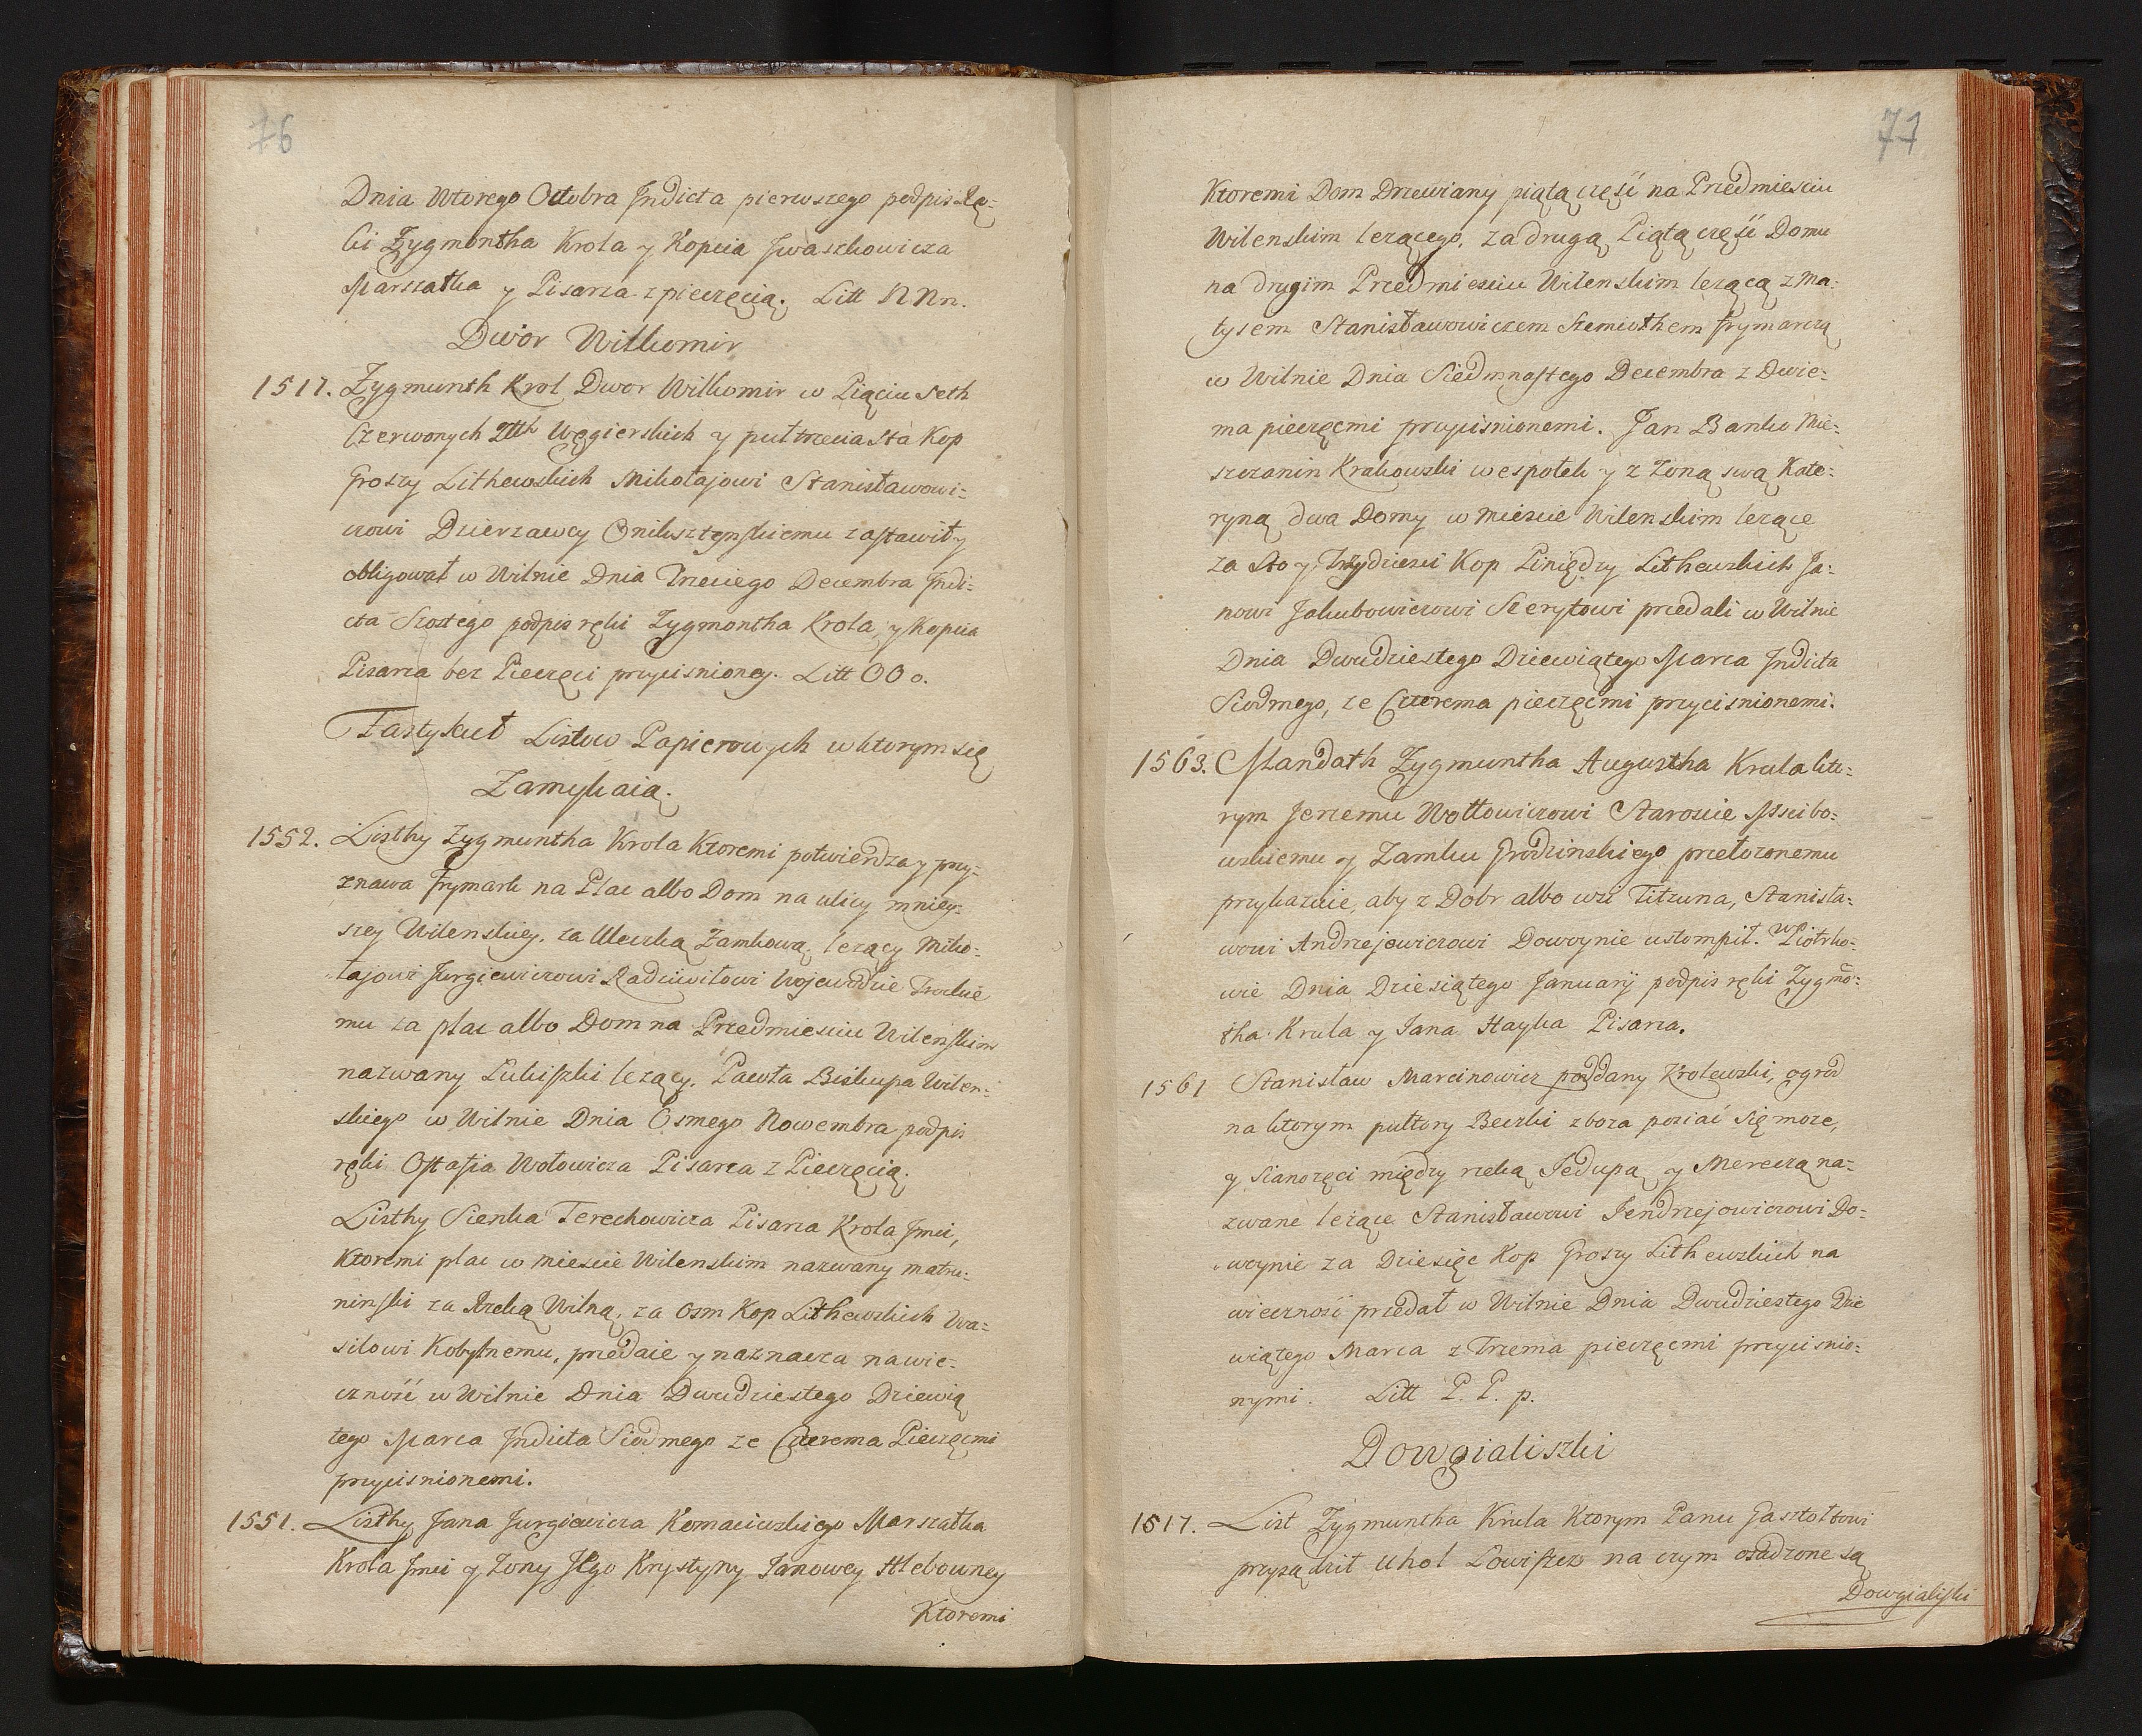 76
Dnia Wtorego Octobra Indicta pierwszego podpis Rę-
ki Zygmontha Krola y Kopcia Iwaszkowicza
Marszałka y Pisarza z pieczęcią. Litt NNn.
Dwór Wilkomir
1517. Zygmunth Krol Dwor Wilkomir w Pięciu Seth
Czerwonych Złłh Węgierskich y pułtrzecia Sta Kop
Groszy Lithewskich Mikołajowi Stanisławowi-
czowi Dzierzawcy Onikszteńskiemu zastawił y
obligował w Wilnie Dnia Trzeciego Decembra Indi-
cta Szostego podpis ręki Zygmontha Krola, y Kopcia
Pisarza bez Pieczęci przycisnioney. Litt OOo.
Fastykuł Listow Papierowych w ktorym się
Zamykaią.
1552. Listhy Zygmuntha Krola Ktoremi potwierdza y przy-
znawa Frymark na Plac albo Dom na ulicy mniey-
szey Wilenskiey, za Uleczką Zamkową, lezący Miko-
łajowi Jurgiewiczowi Radziwiłowi Wojewodzie Trockie
mu za plac albo Dom na Przedmiesciu Wilenskim
nazwany Lukiszki lezący. Pawła Biskupa Wilen-
skiego w Wilnie Dnia Osmego Nowembra podpis
ręki Ostafia Wołowicza Pisarza z Pieczęcią.
Listhy Sienka Terechowicza Pisarza Krola Jmci,
Ktoremi plac w miescie Wilenskim nazwany matru-
ninski za Rzeką Wilną, za osm Kop Lithewskich Wa-
silowi Kobylnemu, przedaie y naznacza na wie-
czność w Wilnie Dnia Dwudziestego Dziewią
tego Marca Indicta Siodmego ze Czterema Pieczęcmi
przycisnionemi.
1551. Listhy Jana Jurgiewicza Komaiewskiego Marszałka
Krola Jmci y Zony Jego Krystyny Janowey Hlebowney
Ktoremi
77
Ktoremi Dom Drzewiany piątą część na Przedmiesciu
Wilenskim lezącego, za drugą Piątą część Domu
na drugim Przedmiesciu Wilenskim lezącą z Ma-
tysem Stanisławowiczem Szemiothem frymarczą
w Wilnie Dnia Siedmnastego Decembra z Dwie-
ma pieczęcmi przycisnionemi. Jan Banko Mie-
szczanin Krakowski wespołek y z Zoną swą Kate-
ryną dwa Domy w miescie Wilenskim lezące
za Sto y Trzydziesci Kop Piniędzy Lithewskich Ja-
nowi Jakubowiczowi Szerytowi przedali w Wilnie
Dnia Dwudziestego Dziewiątego Marca Indicta
Siodmego, ze Czterema pieczęcmi przycisnionemi.
1563. Mandath Zygmuntha Augustha Krula kto-
rym Jerzemu Wołłowiczowi Staroscie Mscibo-
wskiemu y Zamku Grodzinskiego przełozonemu
przykazuie, aby z Dobr albo wsi Titzuna, Stanisła-
wowi Andrzejewiczowi Dowoynie ustompił. w Piotrko-
wie Dnia Dziesiątego Januarij podpis ręki Zygmo-
tha Krula y Jana Hayka Pisarza.
1561 Stanisław Marcinowicz poddany Krolewski, ogrod
na ktorym pułtory Beczki zboza posiać się moze,
y Sianozęci między rzeką Jedupą y Mereczą na-
zwane lezące Stanisławowi Jendrzejowiczowi Do-
woynie za Dziesięc Kop Groszy Lithewskich na
wieczność przedał w Wilnie Dnia Dwudziestego Dzie
wiątego Marca z Trzema pieczęcmi przycisnio-
nymi. Litt P. P. p.
Dowgialiszki
1517. List Zygmuntha Krula Ktorym Panu Gasztołtowi
przysądził Uhol Lowiszcz na czym osadzone są
Dowgialiszki